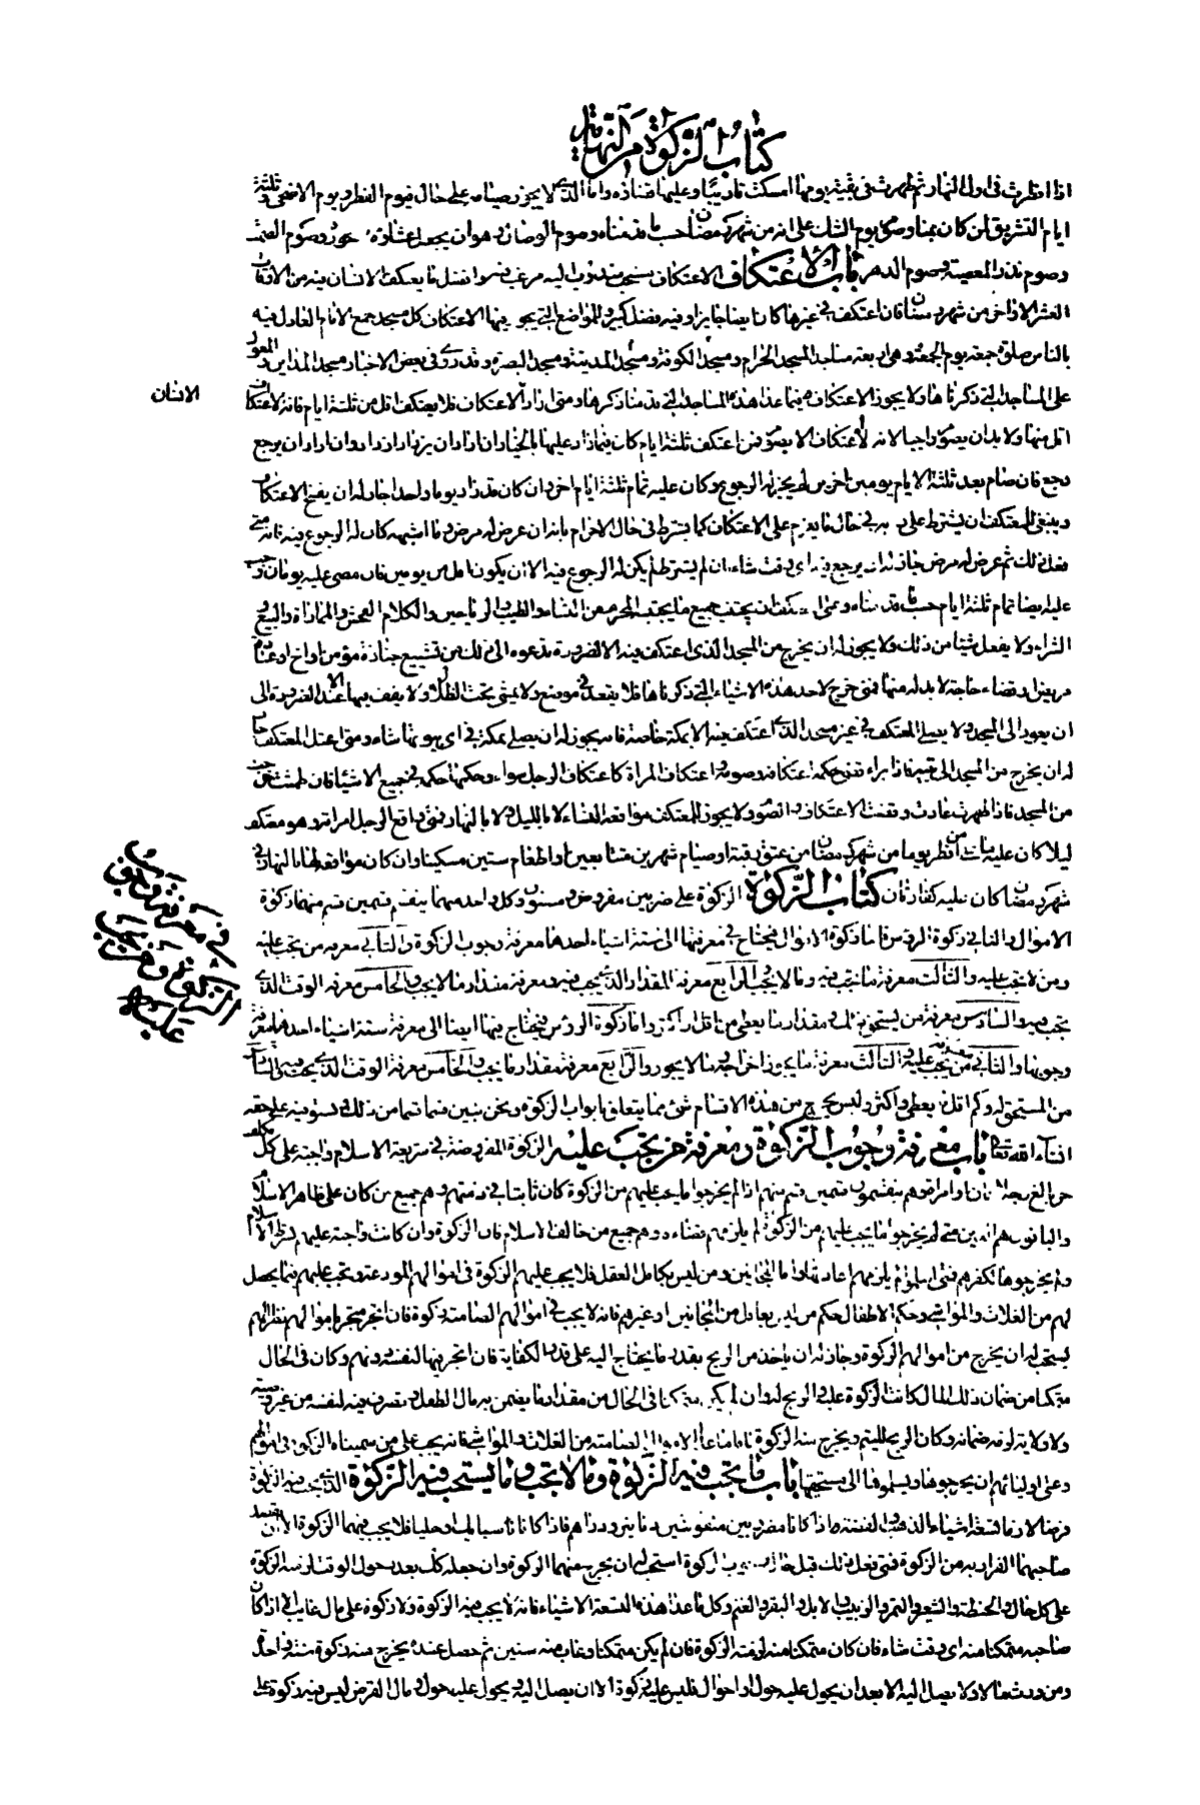 كتاب الزكوة من النهاية
اذا افطرت فى اول النهار ثم طهرت فى بقية يومها امسكت تاديبا وعليها قضاؤه واما الذى لا يجوز صيامه على حال فيوم الفطر ويوم الاضحى وثلثة
ايام التشريق لمن كان بمنا وصوم يوم الشك على انه من شهر رمضان حسب ما قدمناه وصوم الوصال وهو ان يجعل عشاؤه سحوره وصوم الصمت
وصوم نذر المعصية وصوم الدهر باب الاعتكاف الاعتكاف مستحب مندوب اليه مرغب فيه وافضل ما يعتكف الانسان فيه من الاوقات
العشر الاواخر من شهر رمضان فان اعتكف فى غيرها كان ايضا جايزا وفيه فضل كبير والمواضع التى يجوز فيها الاعتكاف كل مسجد جمع الامام العادل فيه
بالناس صلوة جمعة يوم الجمعة وهى اربعة مساجد المسجد الحرام ومسجد الكوفة ومسجد المدينة ومسجد البصرة وقد روى فى بعض الاخبار مسجد المداين والمعول
على المساجد التى ذكرناها ولا يجوز الاعتكاف فيما عدا هذه المساجد التى قدمنا ذكرها ومتى اراد الاعتكاف فلا يعتكف اقل من ثلثة ايام فانه لا اعتكاف
الانسان
اقل منها ولا بد ان يصوم واجبا لانه لا اعتكاف الا بصوم فمن اعتكف ثلثة ايام كان فيما زاد عليها بالخيار ان اراد ان يزداد ازداد وان اراد ان يرجع
رجع فان صام بعد ثلثة الايام يومين اخرين لم يجز له الرجوع وكان عليه تمام ثلثة ايام اخر وان كان قد زاد يوما واحدا جاز له ان يفسخ الاعتكاف
وينبغى للمعتكف ان يشترط على ربه فى حال ما يعزم على الاعتكاف كما يشترط فى حال الاحرام بانه ان عرض له مرض وما اشبهه كان له الرجوع فيه فانه متى
فعل ذلك ثم عرض له مرض جاز له ان يرجع فيه اى وقت شاء فان لم يشترط لم يكن له الرجوع فيه الا ان يكون اقل من يومين فان مضى عليه يومان وجب
عليه ايضا تمام ثلثة ايام حسب ما قدمناه وعلى المعتكف ان يجتنب جميع ما يجتنبه المحرم من النساء والطيب والرياحين والكلام الفحش والمماراة والبيع
والشراء ولا يفعل شيئا من ذلك ولا يجوز له ان يخرج من المسجد الذى اعتكف فيه الا لضرورة تدعوه الى ذلك من تشييع جنازة مؤمن او اخ او عيادة
مريض او قضاء حاجة لا بد له منها فمتى خرج لاحد هذه الاشياء التى ذكرناها فلا يقعد فى موضع ولا يمشى تحت الظلال ولا يقف فيها الا عند الضرورة الى
ان يعود الى المسجد ولا يصلى المعتكف فى غير مسجد الذى اعتكف فيه الا بمكة خاصة فانه يجوز له ان يصلى بمكة فى اى بيوتها شاء ومتى اعتل المعتكف جاز
له ان يخرج من المسجد الى بيته فاذا براء تقضى حكمه اعتكافه وصومه واعتكاف المراة كاعتكاف الرجل سواء وحكمها حكمه فى جميع الاشياء فان طمثت خرجت
من المسجد فاذا طهرت عادت وقضت الاعتكاف والصوم ولا يجوز للمعتكف مواقعة النساء لا بالليل ولا بالنهار فمتى واقع الرجل امراته وهو معتكف
ليلا كان عليه ما على من افطر يوما من شهر رمضان من عتق رقبة او صيام شهرين متتابعين او اطعام ستين مسكينا وان كان مواقعته لها بالنهار فى
شهر رمضان كان عليه كفارتان كتاب الزكوة الزكوة على ضربين مفروض ومسنون وكل واحد منهما ينقسم قسمين قسم منهما زكوة
الاموال والثانى زكوة الرؤس فاما زكوة الاموال فيحتاج فى معرفتها الى ستة اشياء احدها معرفة وجوب الزكوة والثانى معرفة من تجب عليه
ومن لا تجب عليه والثالث معرفة ما تجب فيه وما لا يجب والرابع معرفة المقدار الذى يجب فيه ومعرفة مقدار ما لا يجب والخامس معرفة الوقت الذى
تجب فيه والسادس معرفة من يستحق ذلك ومقدار ما يعطى من اقل او اكثر واما زكوة الرؤس فيحتاج فيها ايضا الى معرفة ستة اشياء احدها معرفة
وجوبها والثانى معرفة من يجب عليه والثالث معرفة ما يجوز اخراجه وما لا يجوز والرابع معرفة مقدار ما يجب والخامس معرفة الوقت الذى يجب فيه والسادس
من المستحق له وكم اقل ما يعطى واكثر وليس يخرج من هذه الاقسام شىء مما يتعلق بابواب الزكوة ونحن نبين قسما قسما من ذلك ونستوفيه على حقه
انشاء الله تعالى باب معرفة وجوب الزكوة ومعرفة من تجب عليه الزكوة المفروضة فى شريعة الاسلام واجبة على كل مكلف
فى معرفة وجوب الزكوة ومن تجب عليه
حر بالغ رجلا كان او امراة وهم ينقسمون قسمين قسم منهم اذا لم يخرجوا ما يجب عليهم من الزكوة كان ثابتا فى ذمتهم وهم جميع من كان على ظاهر الاسلام
والباقون هم الذين متى لم يخرجوا ما يجب عليهم من الزكوة لم يلزمهم قضاؤه وهم جميع من خالف الاسلام فان الزكوة وان كانت واجبة عليهم بشرط الاسلام
ولم يخرجوها لكفرهم فمتى اسلموا لم يلزمهم اعادتها واما المجانين ومن ليس بكامل العقل فلا يجب عليهم الزكوة فى اموالهم المودعة وتجب عليهم فيما يحصل
لهم من الغلات والمواشى وحكم الاطفال حكم من ليس بعاقل من المجانين او غيرهم فانه لا يجب فى اموالهم الصامتة زكوة فان اتجر متجر باموالهم نظرا لهم
يستحب له ان يخرج من اموالهم الزكوة وجاز له ان ياخذ من الربح بقدر ما يحتاج اليه على قدر الكفاية فان اتجر بها لنفسه دونهم وكان فى الحال
متمكنا من ضمان ذلك المال كانت الزكوة عليه والربح له وان لم يكن متمكنا فى الحال من مقدار ما يضمن به مال الطفل وتصرف فيه لنفسه من غير وصية
ولا ولاية لزمه ضمانه وكان الربح لليتيم ويخرج منه الزكوة فاما ما عدا الاموال الصامتة من الغلات والمواشى فانه يجب على من سميناه الزكوة فى اموالهم
وعلى اوليائهم ان يخرجوها ويسلموها الى مستحقها باب ما تجب فيه الزكوة وما لا تجب وما يستحب فيه الزكوة الذى تجب فيه الزكوة
فرضا لازما تسعة اشياء الذهب والفضة اذا كانا مضروبين منقوشين دنانير ودراهم فاذا كانا سبائك او حليا فلا يجب فيهما الزكوة الا ان يقصد
صاحبهما الفرار به من الزكوة فمتى فعل ذلك قبل حال وجوب الزكوة استحب له ان يخرج منهما الزكوة وان جعله كذلك بعد دخول الوقت لزمه الزكوة
على كل حال والحنطة والشعير والتمر والزبيب والابل والبقر والغنم وكل ما عدا هذه التسعة الاشياء فانه لا يجب فيه الزكوة ولا زكوة على مال غايب الا اذا كان
صاحبه متمكنا منه اى وقت شاء فان كان متمكنا منه لزمته الزكوة فان لم يكن متمكنا وغاب منه سنين ثم حصل عنده يخرج منه زكوة سنة واحدة
ومن ورث مالا ولا يصل اليه الا بعد ان يحول عليه حول او احوال فليس عليه زكوة الا ان يصل اليه ويحول عليه حول ومال القرض ليس فيه زكوة على